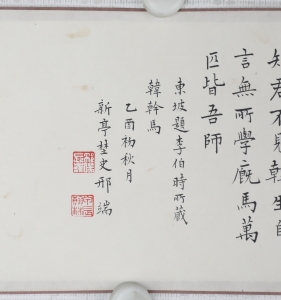 知君不見韓生自
言無所學廐馬萬
匹皆吾師
東坡題李伯時所蔵
韓幹馬
乙酉初秋月
新亭埜史邢端